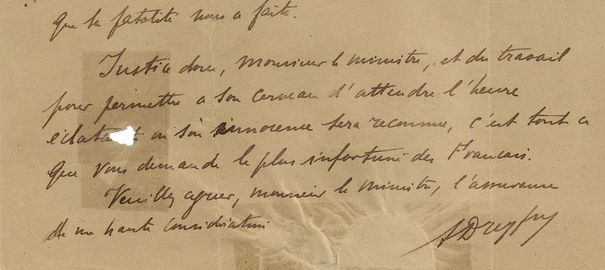 que la fatalité nous a faite.
Justice donc, monsieur le ministre, et du travail
pour permettre a son cerveau d'attendre l'heure
éclatante où son innocence sera reconnue, c'est tout ce
que vous demande le plus infortuné des Français.
Veuillez agréer, monsieur le ministre, l'assurance
de ma haute considération
ADreyfus